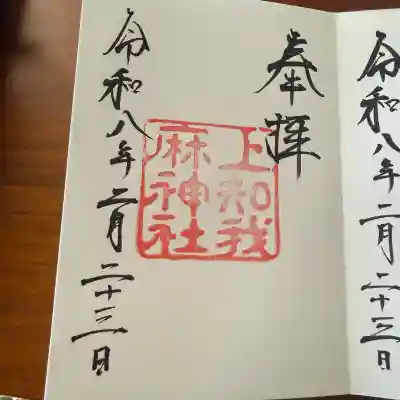 奉拝
上知我
麻神社
令和八年二月二十三日
令和八年二月二十三日